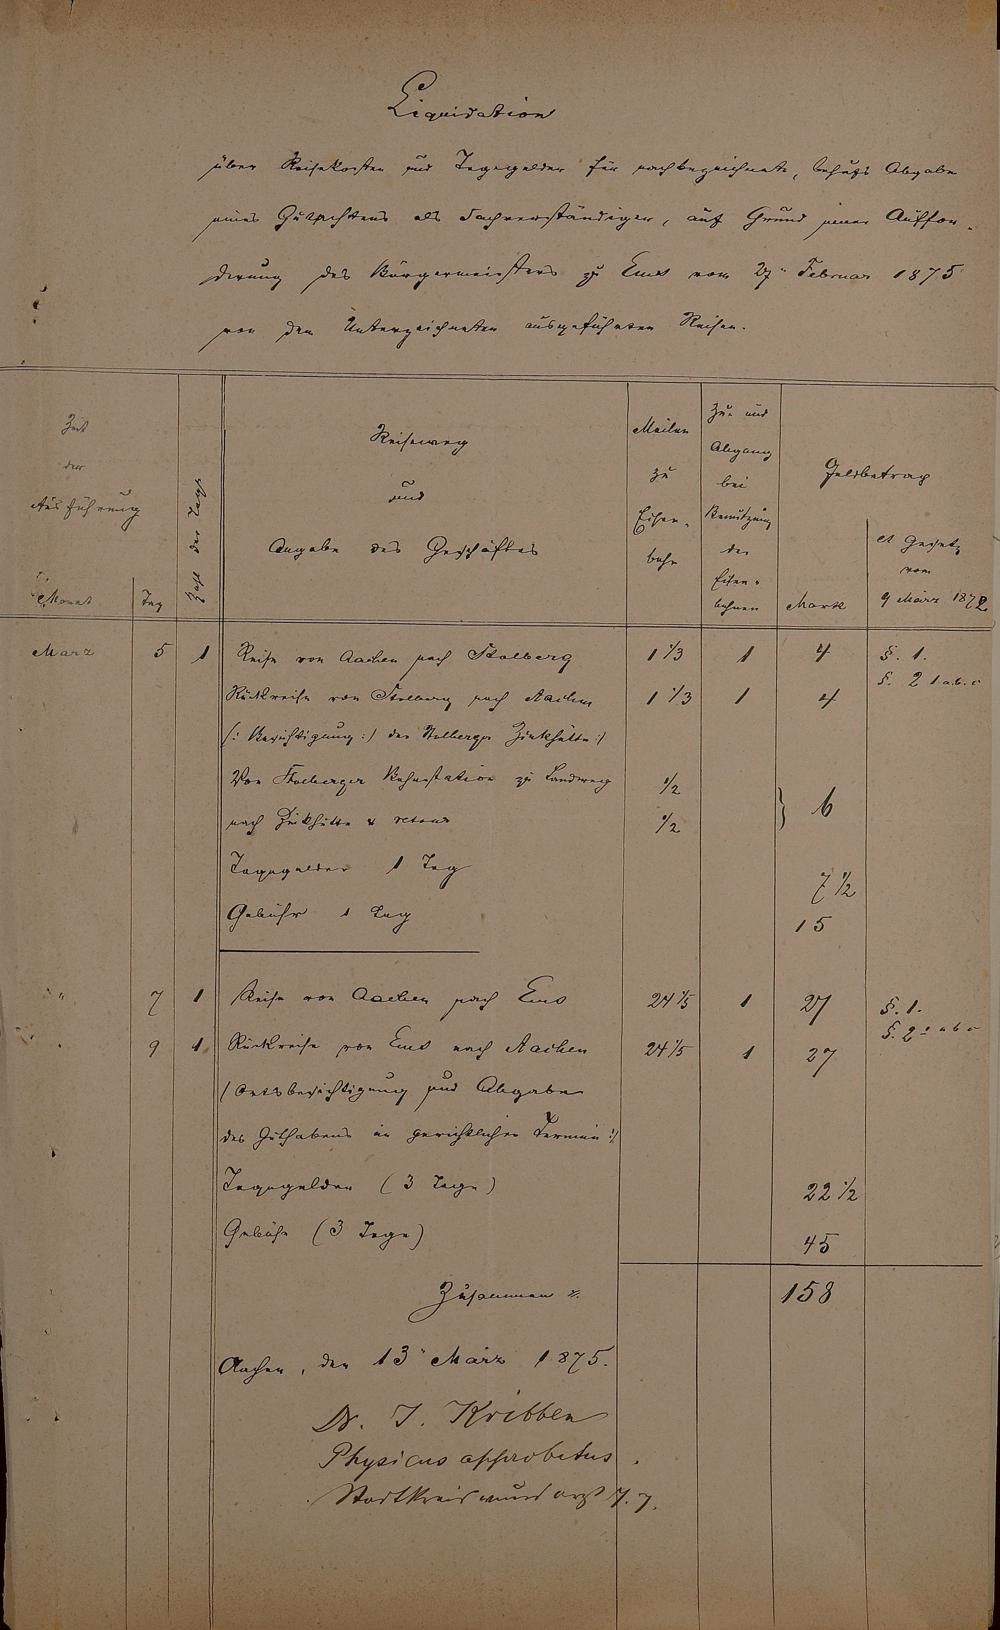 Liquidation
über Reisekosten und Tagegelder für nachbezeichnete, behufs Abgabe
eines Gutachtens als Sachverständiger, auf Grund einer Auffor-
derung des Bürgermeisters zu Ems vom 27n Februar 1875
von dem Unterzeichneten ausgeführten Reisen.
Zeit
der
Ausführung
Monat
Tag
Zahl der Tage
Reiseweg
und
Angabe des Geschäftes
Meilen
zu
Eisen-
bahn
Zu- und
Abgang
bei
Benutzung
der
Eisen-
bahnen
Geldbetrag
Mark
ct Gesetz
vom
9 März 1872.
März 5 1 Reise von Aachen nach Stolberg 1 1/3 1 4 §. 1.
§. 2 1 a. b. c
Rückreise von Stolberg nach Aachen 1 1/3 1 4
(: Besichtigung :) der Stolberger Zinkhütte :)
Von Stolberger Bahnstation zu Landweg 1/2
nach Zinkhütte & retour 1/2 } 6
Tagegelder 1 Tag 7 1/2
Gebühr 1 Tag 15
" 7 1 Reise von Aachen nach Ems 24 1/5 1 27 §. 1.
§. 2 a b c
9 1 Rückreise von Ems nach Aachen 24 1/5 1 27
(Ortsbesichtigung und Abgabe
des Guthabens im gerichtlichen Termin :)
Tagegelder (3 Tage) 22 1/2
Gebühr (3 Tage) 45
Zusammen 158
Aachen, den 13n März 1875.
Dr. J. Kribben
Physicus approbatus.
Stadtkreiswundarzt